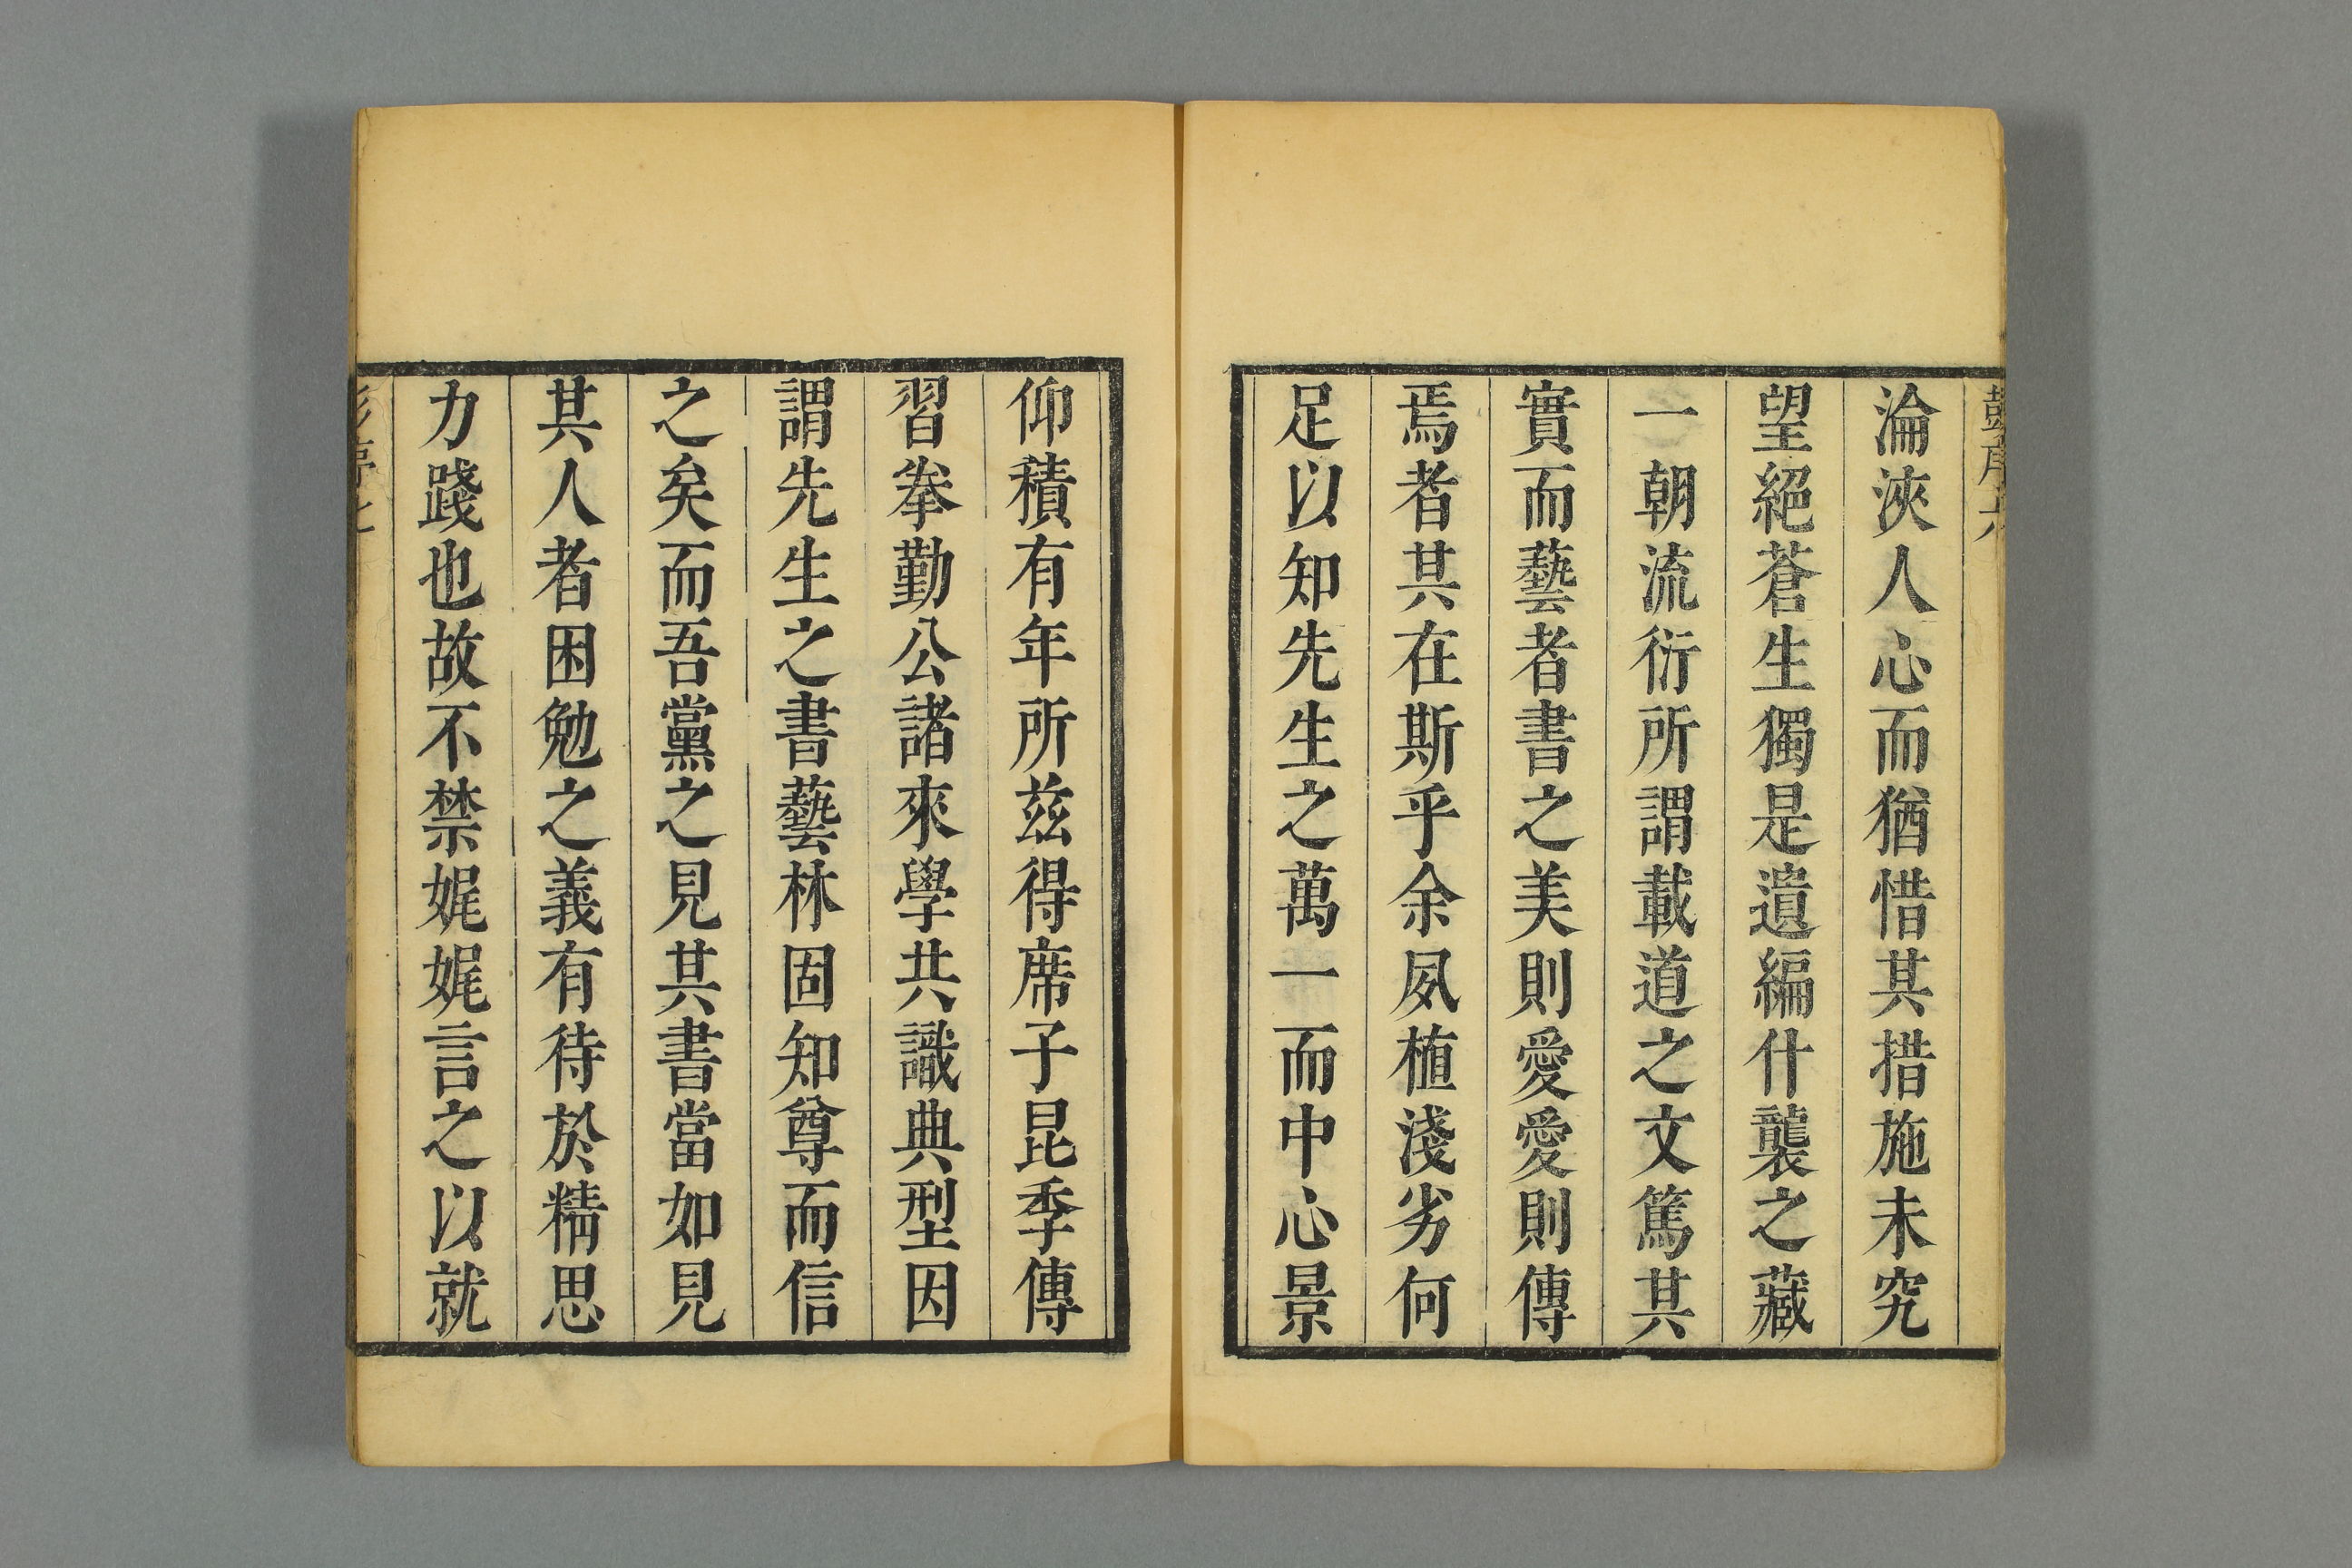 淪浹人心而猶惜其措施未究
望絕蒼生獨是遺編什襲之藏
一朝流衍所謂載道之文篤其
實而藝者書之美則愛愛則傳
焉者其在斯乎余夙植淺劣何
足以知先生之萬一而中心景
仰積有年所茲得席子昆季傳
習拳勤公諸來學共識典型因
謂先生之書藝林固知尊而信
之矣而吾黨之見其書當如見
其人者困勉之義有待於精思
力踐也故不禁娓娓言之以就